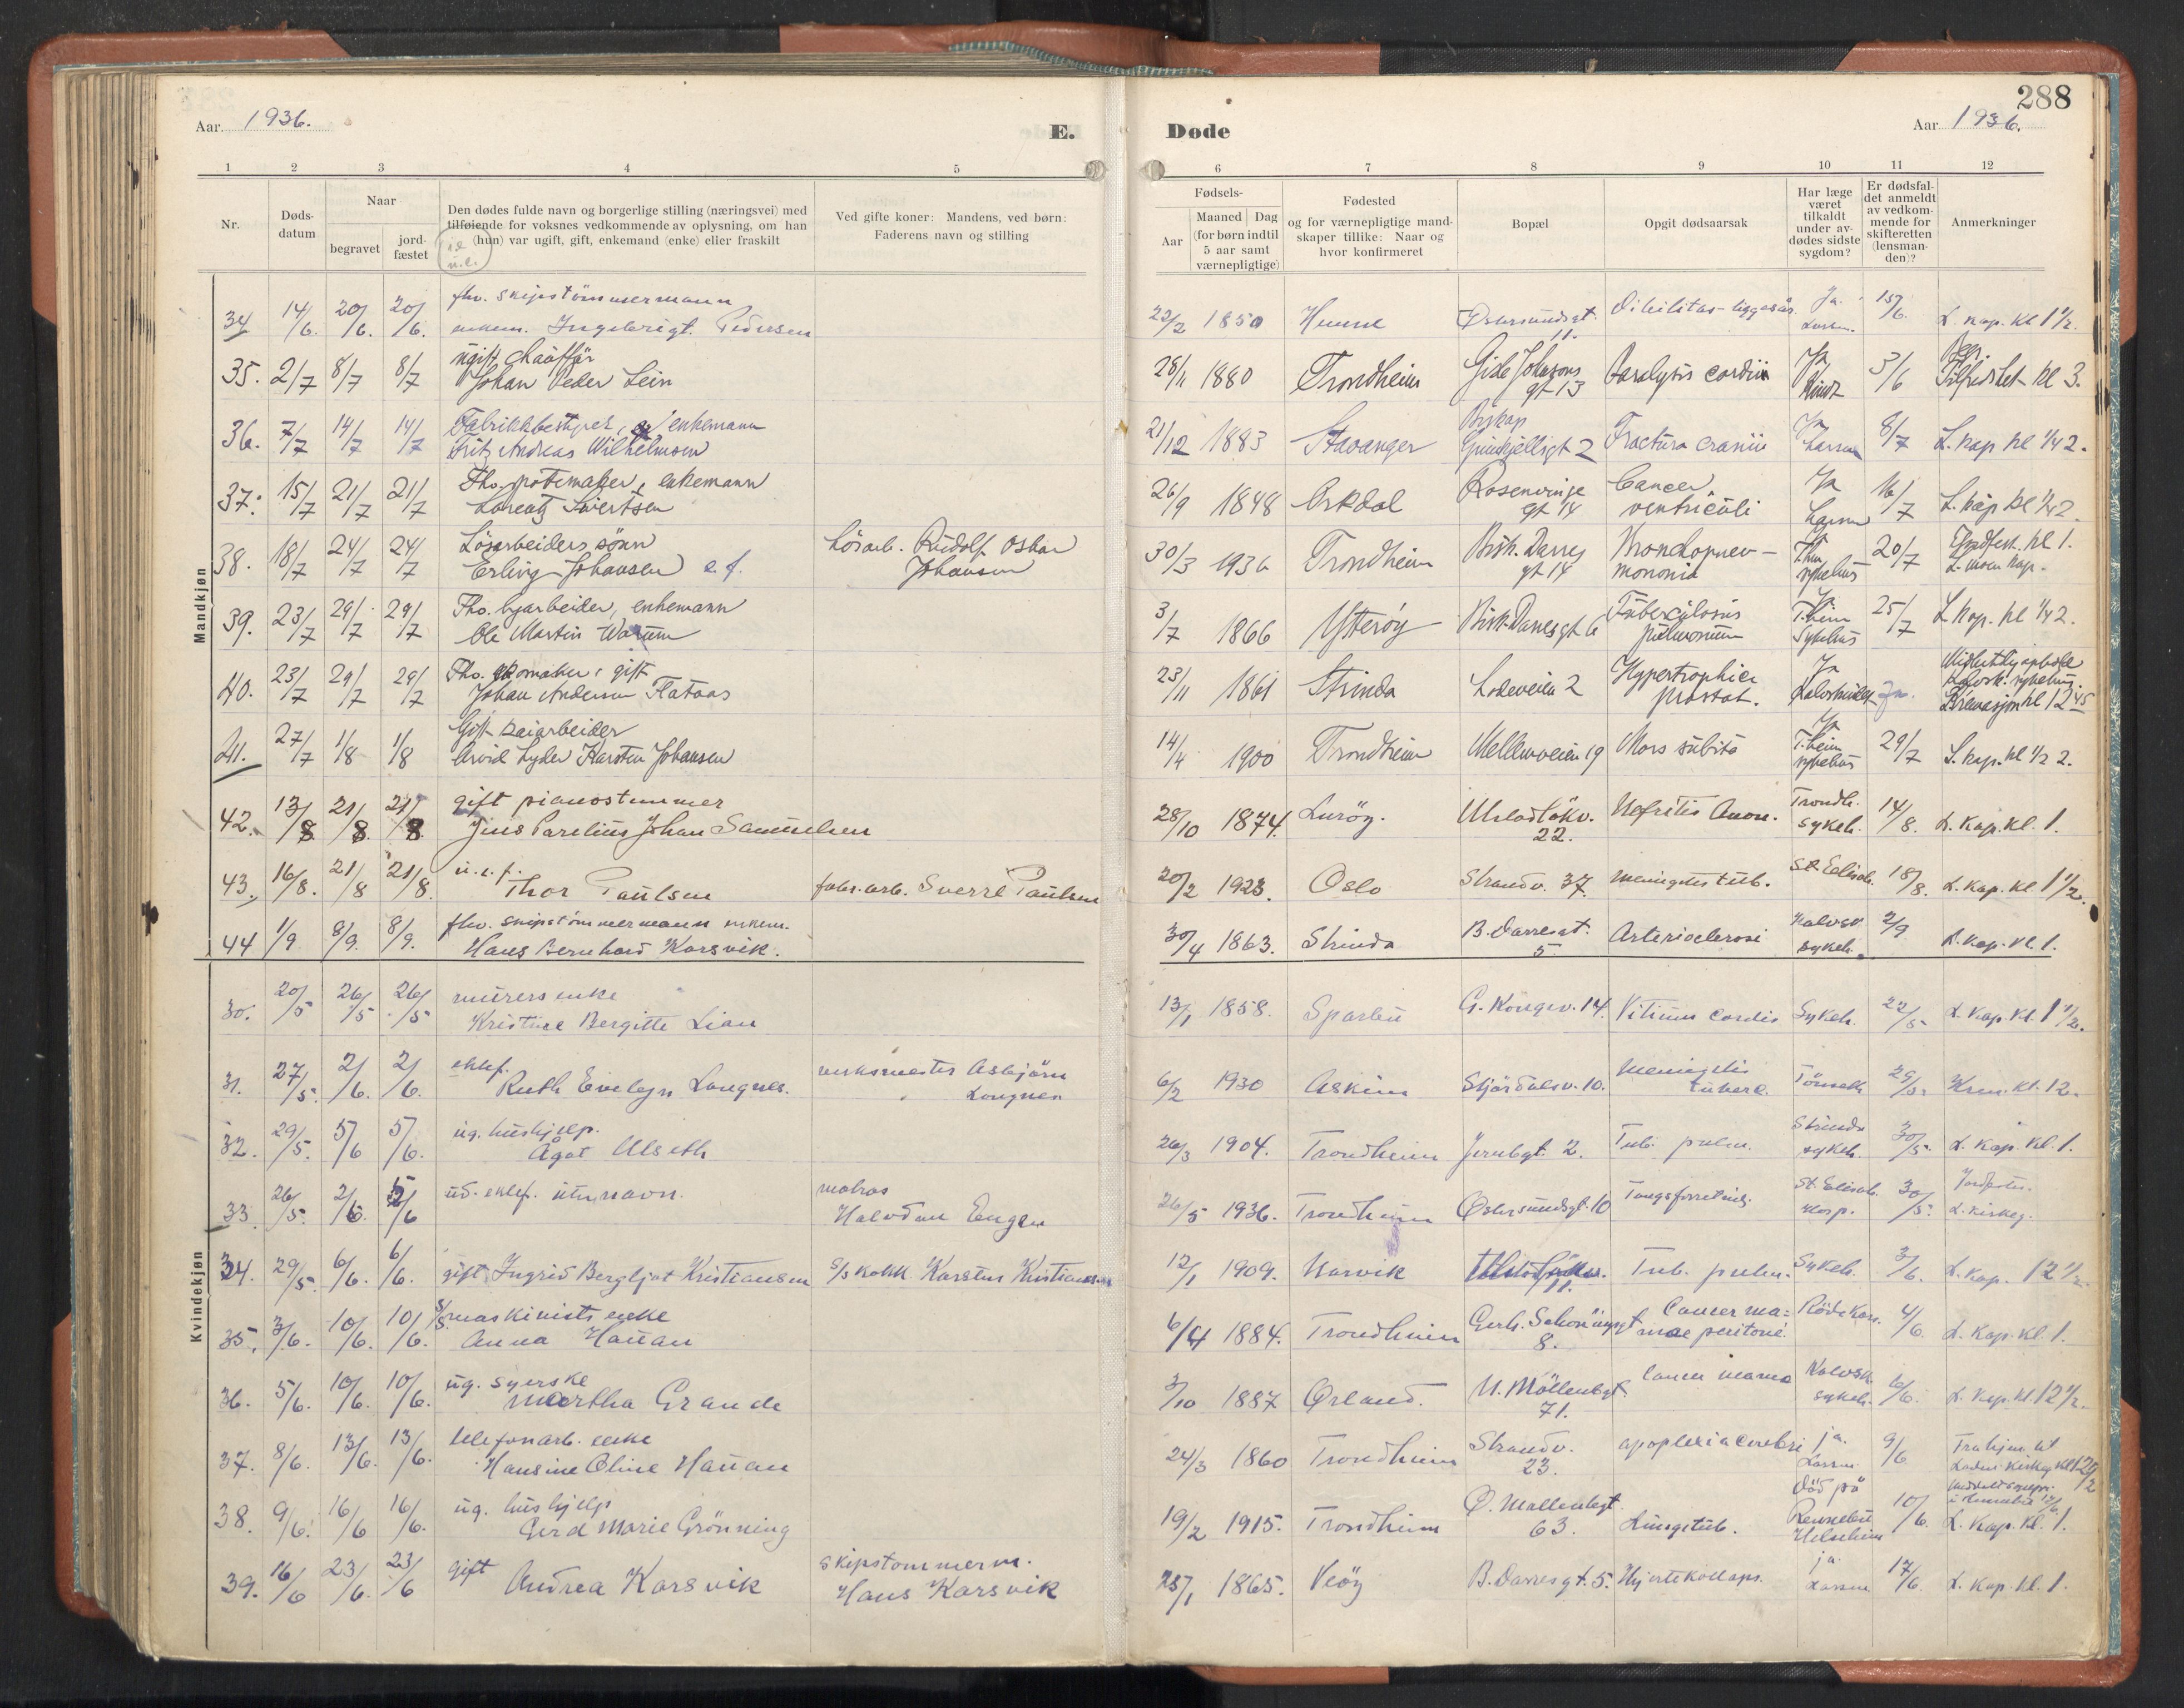 288
Aar 1936.
E.
Døde
Aar 1936.
1 2 3 4 5 6 7 8 9 10 11 12
Nr.
Døds-
datum
Naar
begravet
jord-
fæstet
Den dødes fulde navn og borgerlige stilling (næringsvei) med
tilføiende for voksnes vedkommende av oplysning, om han
(hun) var ugift, gift, enkemand (enke) eller fraskilt
Ved gifte koner: Mandens, ved børn:
Faderens navn og stilling
Fødsels-
Aar
Maaned Dag
(for børn indtil
5 aar samt
værnepligtige)
Fødested
og for værnepligtige mand-
skaper tillike: Naar og
hvor konfirmeret
Bopæl
Opgit dødsaarsak
Har læge
været
tilkaldt
under av-
dødes sidste
sygdom?
Er dødsfal-
det anmeldt
av vedkom-
mende for
skifteretten
(lensman-
den)?
Anmerkninger
Mandkjøn
fhv. skipstömmermann
34 14/6. 20/6. 20/6. enkem. Ingebrigt Pedersen 22/2 1850 Östersundsgt. 11. Ja. 15/6. L. kap. kl 1 1/2.
ugift chauffør
35. 2/7 8/7 8/7 Johan Peder Lein 28/11 1880 Trondheim gt 13 Paralysis cordis Ja 3/6 kl 3.
Fabrikkbestyrer, enkemann
36. 7/7 14/7 14/7 Fritz Andreas Wilhelmsen 21/12 1883 Stavanger Biskop Grimkjellsgt 2 Fractura cranii Ja Larsen 8/7 L. kap kl 1/2 2.
Fhv. potemaker, enkemann
37. 15/7 21/7 21/7 Lorentz Sivertsen 26/9 1848 Orkdal Rosenvinge gt 14 Cancer ventriculi Ja Larsen 16/7 L. kap kl 1/2 2.
Løsarbeiders sønn
38. 18/7 24/7 24/7 Erling Johansen e.f. Løsarb. Rudolf Oskar Johansen 30/3 1936 Trondheim Bisk. Darres gt 14 Bronchopneu-monia Thm sykehus 20/7 kl 1.
Fhv. byarbeider, enkemann
39. 23/7 29/7 29/7 Ole Martin Warum 3/7 1866 Ytterøy Bisk. Darres gt 6 Tuberculosis pulmonum Ja T.heim Sykehus 25/7 L. kap. kl 1/2 2.
Fhv. skomaker, gift
40. 23/7 29/7 29/7 Johan Andersen Flataas 23/11 1861 Strinda Ladeveien 2 Hypertrophia prostat. Ja Kalvskindet Kremasjon kl 12 45
Gift kaiarbeider
41. 27/7 1/8 1/8 Arvid Lyder Karsten Johansen 14/4 1900 Trondheim Mellemveien 19 Mors subita Ja T.heim sykehus 29/7 L. kap. kl 1/2 2.
gift pianostemmer
42. 13/8 21/8. 21/8. Jens Parelius Johan Samuelsen 28/10 1874. Lurøy. Ulstadløkv. 22. Nefritis Trondh. sykeh. 14/8. L. kap. kl. 1.
u.e.f.
43. 16/8. 21/8 21/8. Thor Paulsen fabr.arb. Sverre Paulsen 20/2 1923. Oslo Strandv. 37. meningitis tub. St. Elisab. 18/8. L. kap. kl 1 1/2.
fhv. skipstömmermann enkem.
44 1/9. 8/9. 8/9. Hans Bernhard Karsvik. 30/4 1863. Strinda B. Darresgt. 5 Arteriosclerosi Kalvsk sykeh. 2/9 L. kap. kl. 1.
Kvindekjøn
murers enke
30. 20/5 26/5 26/5 Kristine Bergitte Lian 13/1 1858. Sparbu G. Kongev. 14. Vitium cordis Sykeh. 22/5 L. kap. kl. 1 1/2.
ektef.
31. 27/5. 2/6. 2/6. Ruth Evelyn Longnes. verksmester Asbjörn Longnes 6/2 1930 Askim Stjørdalsv. 10. Meningitis tuberc. 29/5. Krem. kl. 12.
ug. hushjelp.
32. 29/5. 5/6 5/6. Ågot Ulseth 26/3 1904. Trondheim Jernbgt. 2. Tub. pulm. Strinda sykeh. 30/5. L. kap. kl. 1.
33. 26/5. 2/6. 2/6 ud. ektef. utn navn. matros Halvdan Engen 26/5 1936. Trondheim Østersundsgt. 10 St. Elisab. Hosp. 30/5. L. kirkeg.
34. 29/5. 6/6. 6/6. gift Ingrid Bergljot Kristiansen s/s kokk Karsten Kristiansen 12/1 1909. Narvik 11. Tub. pulm. Sykeh. 3/6. L. kap. 12 1/2
s/s maskinists enke
35. 3/6. 10/6. 10/6. Anna Hauan 6/4 1884. Trondheim Gerh. Schöningsgt 8. Cancer ma=mae peritone. Röde Kors. 4/6. L. kap. kl. 1.
ug. syerske
36. 5/6. 10/6. 10/6. Martha Grande 3/10 1887 Ørland. N. Möllenbgt. 71. Cancer mama Kalvsk. sykeh. 6/6. L. kap. kl. 12 1/2.
telefonarb. enke
37. 8/6. 13/6. 13/6. Hansine Oline Hauan 24/3 1860 Trondheim Strandv. 23. apoplexia cerebri ja. Larsen 9/6 Fra hjm. til
ug. hushjelp
38. 9/6. 16/6 16/6. Gerd Marie Grönning 19/2 1915. Trondheim Ø. Møllenbgt. 63. Lungetub. Död på Rennebu Helseheim 10/6. L. kap. kl. 1.
39. 16/6 23/6. 23/6 gift Andrea Karsvik skipstømmerm. Hans Karsvik 25/1 1865. Veöy B. Darresgt. 5. Hjertekollaps. ja. Larsen 17/6. L. kap. kl. 1.